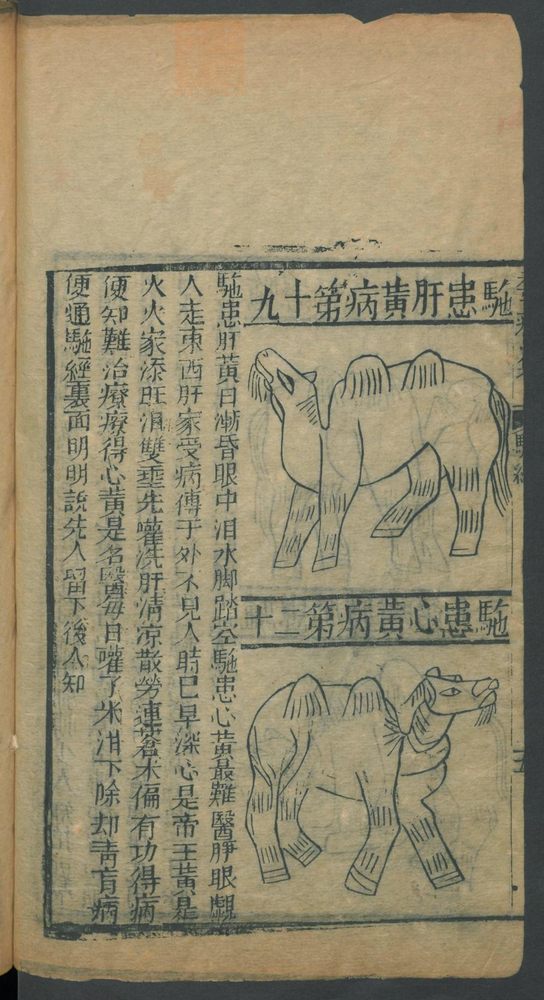 駞患肝黄病第十九
駞患心黄病第二十
駞患肝黄日漸昏眼中泪水脚踏空駞患心黄最難醫睜眼覷
人走東西肝家受病傳于外不見人時巳早深心是帝王黄是
火火家添旺泪雙垂先嚾洗肝清凉散勞連蒼朮偏有功得病
便知難治療療得心黄是名醫每日嚾了米泔下除却青肓病
便通駞經裏面明明說先人留下後人知